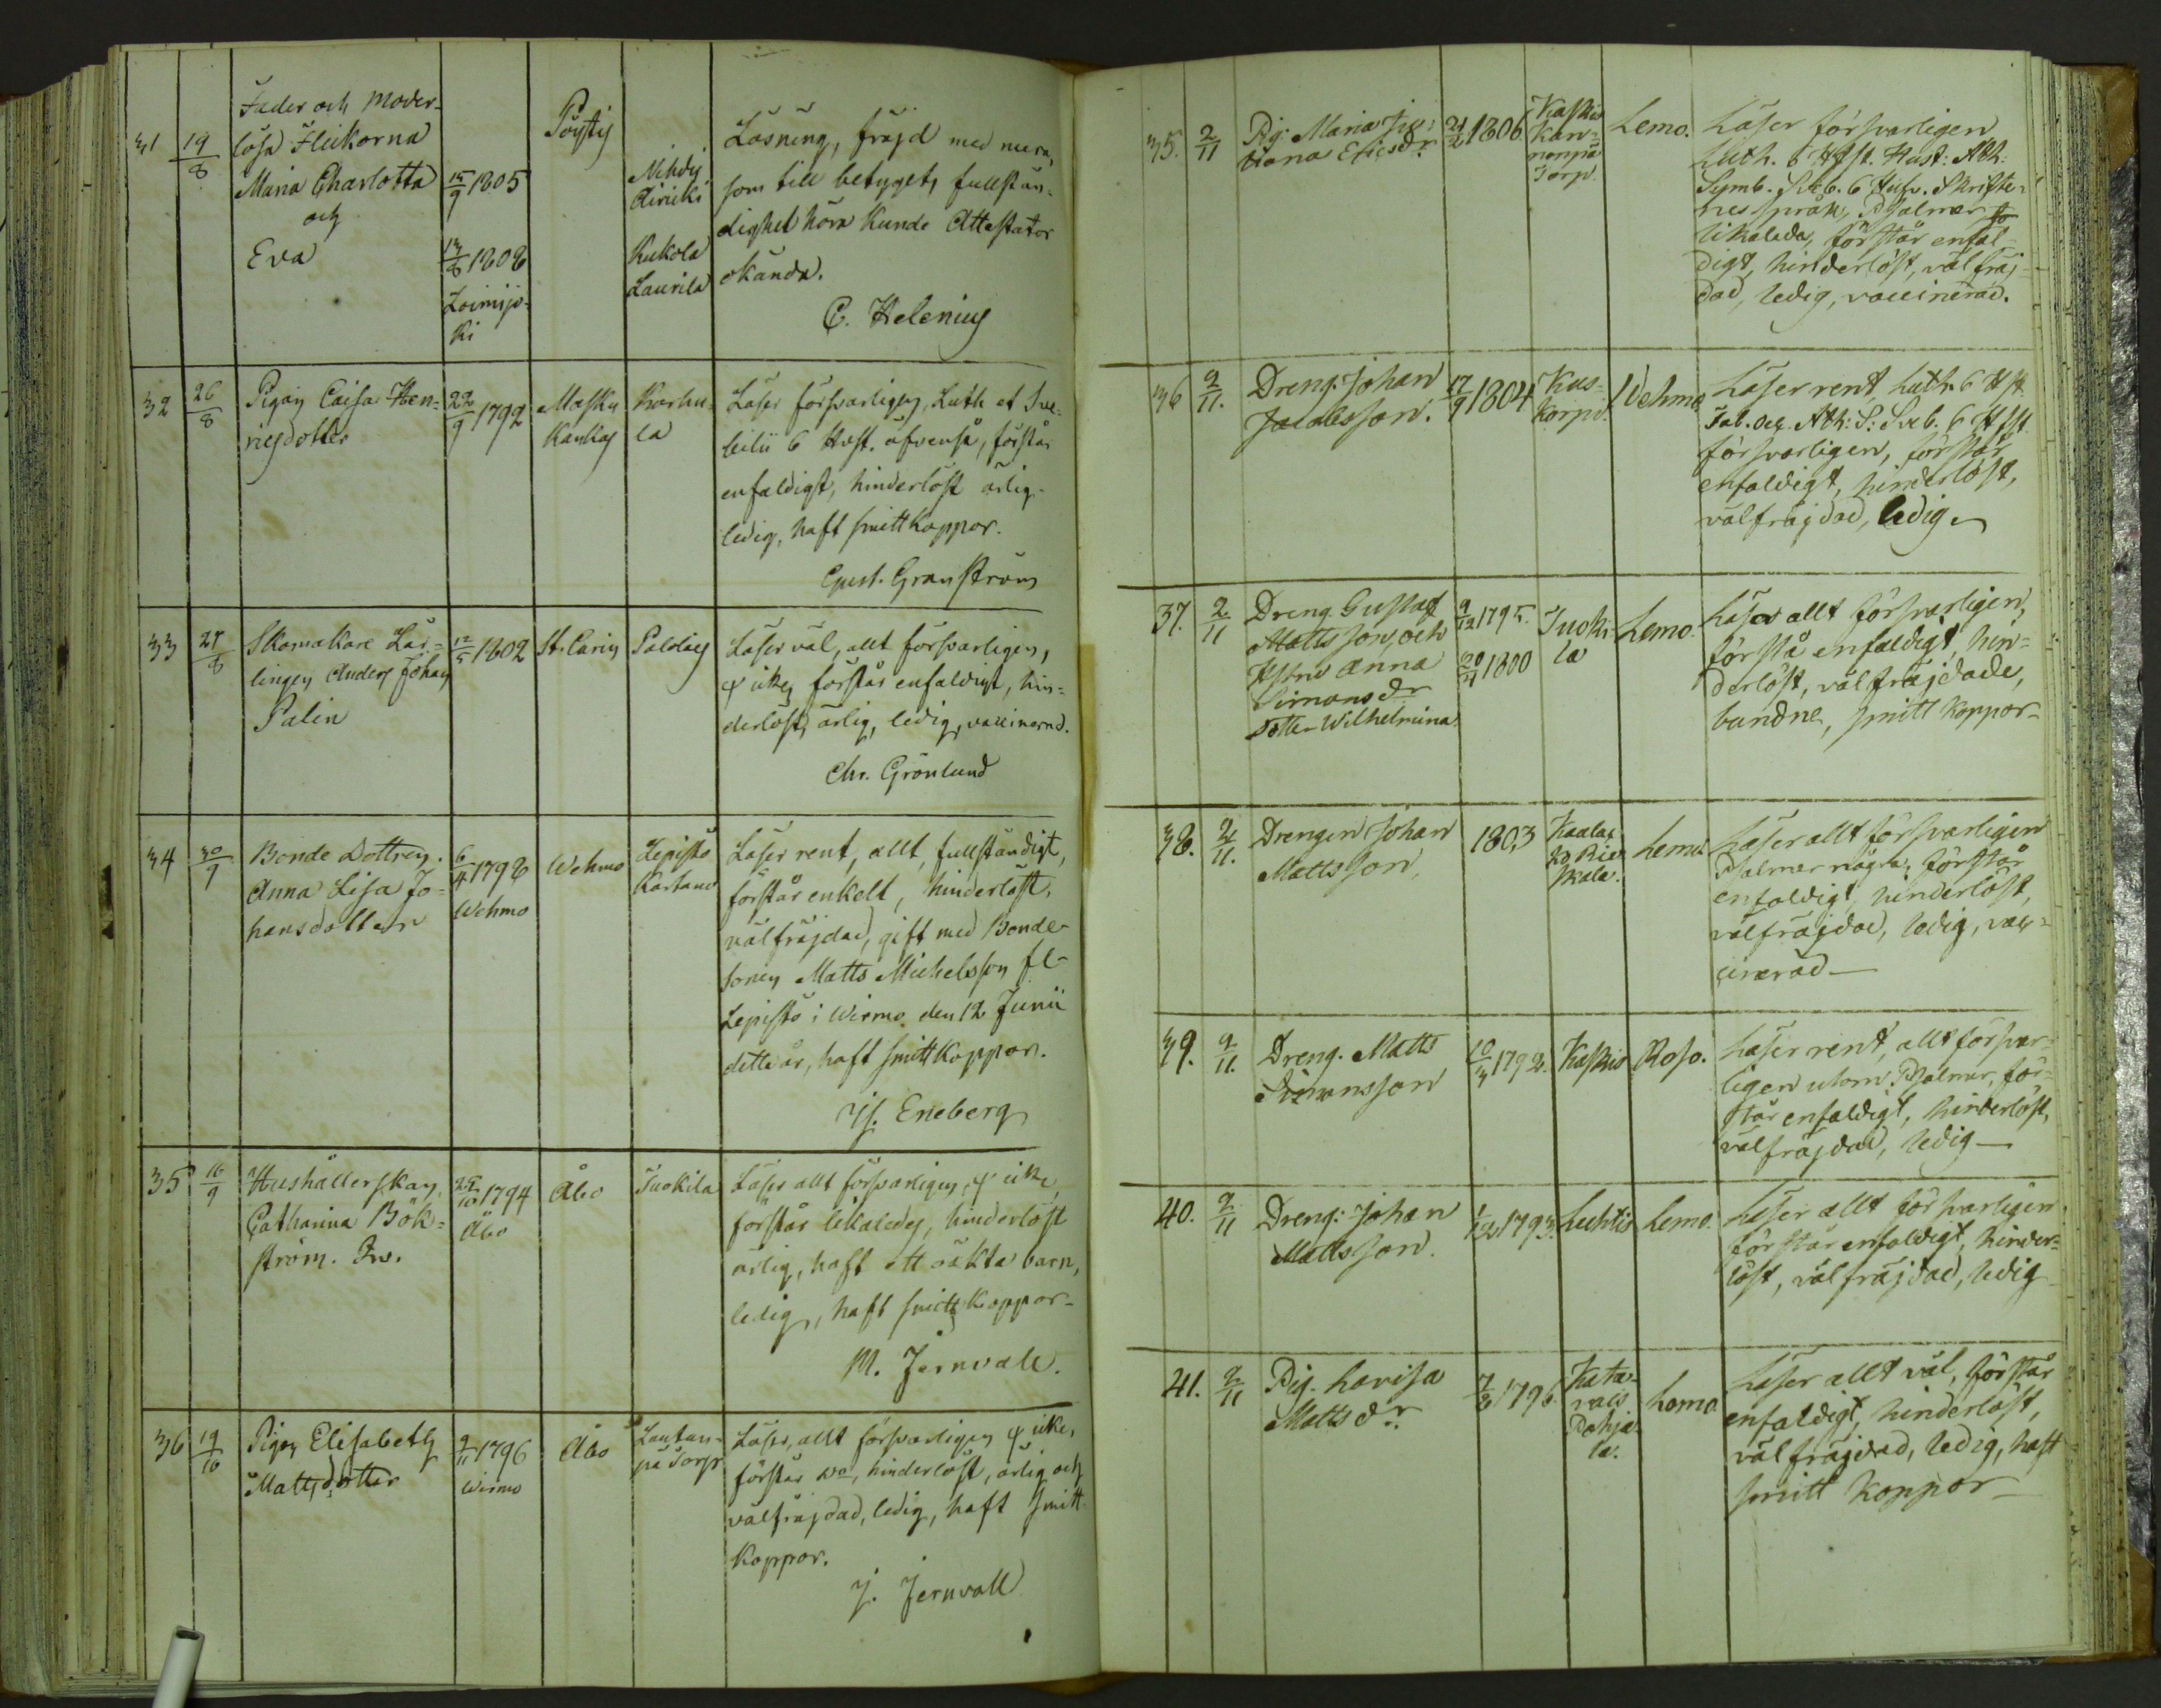 31 19/8 Fader och Moder-
lösa Flickorna
Maria Charlotta
och
Eva
15/9 1805
13/8 1808
Loimijo-
ki
Pöytis
Nihdis
Airicki
Kukola
Laurila
Läsning, fräjd med mera,
som till betygets fullstän-
dighet höra kunde Attestator
okända.
C. Helenius
32 26/8 Pigan Caisa Hen-
ricsdotter
22/9 1792
Masku
Kankas
Karhu-
la
Läser försvarligen, Luth et Sve-
bilii 6 Hvst. äfvenså, förstår
enfaldigt, hinderlöst ärlig,
ledig, haft smittkoppor.
Gust. Granström
33 27/8 Skomakare Lär-
lingen Anders Johan
Palin
12/5 1802
St. Carins
Paldais
Läser väl, allt försvarligen,
φ icke, förstår enfaldigt, hin-
derlöst, ärlig, ledig, vaccinerad.
Chr. Grönlund
34 30/9 Bonde Dottren
Anna Lisa Jo-
hansdotter
6/4 1798
Wehmo
Wehmo
Lepistö
Kartano
Läser rent, allt fullständigt,
förstår enkelt, hinderlöst,
välfräjdad, gift med Bonde-
sonen Matts Michelsson fr-
Lepistö i Wirmo den 12 Junii
detta år, haft smittkoppor.
Is. Eneberg
35 16/9 Hushållerskan,
Catharina Bök-
ström. Fw.
25/10 1794
Åbo
Åbo
Tuokila
Läser allt försvarligen, φ icke,
förstår likaledes, hinderlöst
ärlig, haft ett oäkta barn,
ledig, haft smittkoppor-
M. Jernvall.
36 19/10 Pigan Elisabeth
Mattsdotter
9/11 1796
Wirmo
Åbo
Lautan-
pä Torp
Läser, allt försvarligen φ icke,
förstår do, hinderlöst, ärlig och
välfräjdad, ledig, haft smitt-
koppor.
J. Jernvall
35. 2/11 Pig: Maria
Ericsdr
21/2 1806.
Kaskis
Kan-
nonpä
Torp.
Lemo.
Läser försvarligen
Luth. 6 Hfst. Hust: Ath:
Symb. Sveb. 6 Hufv. Skrifte-
nes språk, Psalmer
likaleda, förstår enfal-
digt, hinderlöst, välfräj-
dad, ledig, vaccinerad.
36 2/11. Dreng. Johan
Jacobsson.
17/9 1804
Kus-
korpi.
Wehmo
Läser rent, Luth. 6 Hst.
Tab. oec. Ath: S: Sveb. 6 Hfst
försvarligen, förstår
enfaldigt, hinderlöst,
välfräjdad, ledig.
37. 2/11 Dreng. Gustaf
Mattsson, och
Hstru Anna
Simonsdr
Dotter Wilhelmina
9/12 1795.
20/4 1800
Tuoki-
la
Lemo.
Läser allt försvarligen,
förstå enfaldigt, hin-
derlöst, välfräjdade,
bundne, smitt koppor-
38. 2/11. Drengen Johan
Mattsson,
1803
Kaalas
ko Ries
skala.
Lemo.
Läser allt försvarligen
Psalmer några, förstår
enfaldigt, hinderlöst,
välfräjdad, ledig, vac-
cinerad-
39. 2/11. Dreng. Matts
Simonsson
10/3 1792.
Kaskis
Poso.
Läser rent, allt försvar-
ligen utom Psalmer, för-
står enfaldigt, hinderlöst,
välfräjdad, ledig-
40. 2/11 Dreng: Johan
Mattsson.
1/12 1793.
Luhtis
Lemo.
Läser allt försvarligen
förstår enfaldigt, hinder-
löst, välfräjdad, ledig
41. 2/11 Pig. Lovisa
Mattsdr
7/8 1796
Kata-
vais
Pohja-
la.
Lemo.
Läser allt väl, förstår
enfaldigt, hinderlöst,
välfräjdad, ledig, haft
smitt koppor-